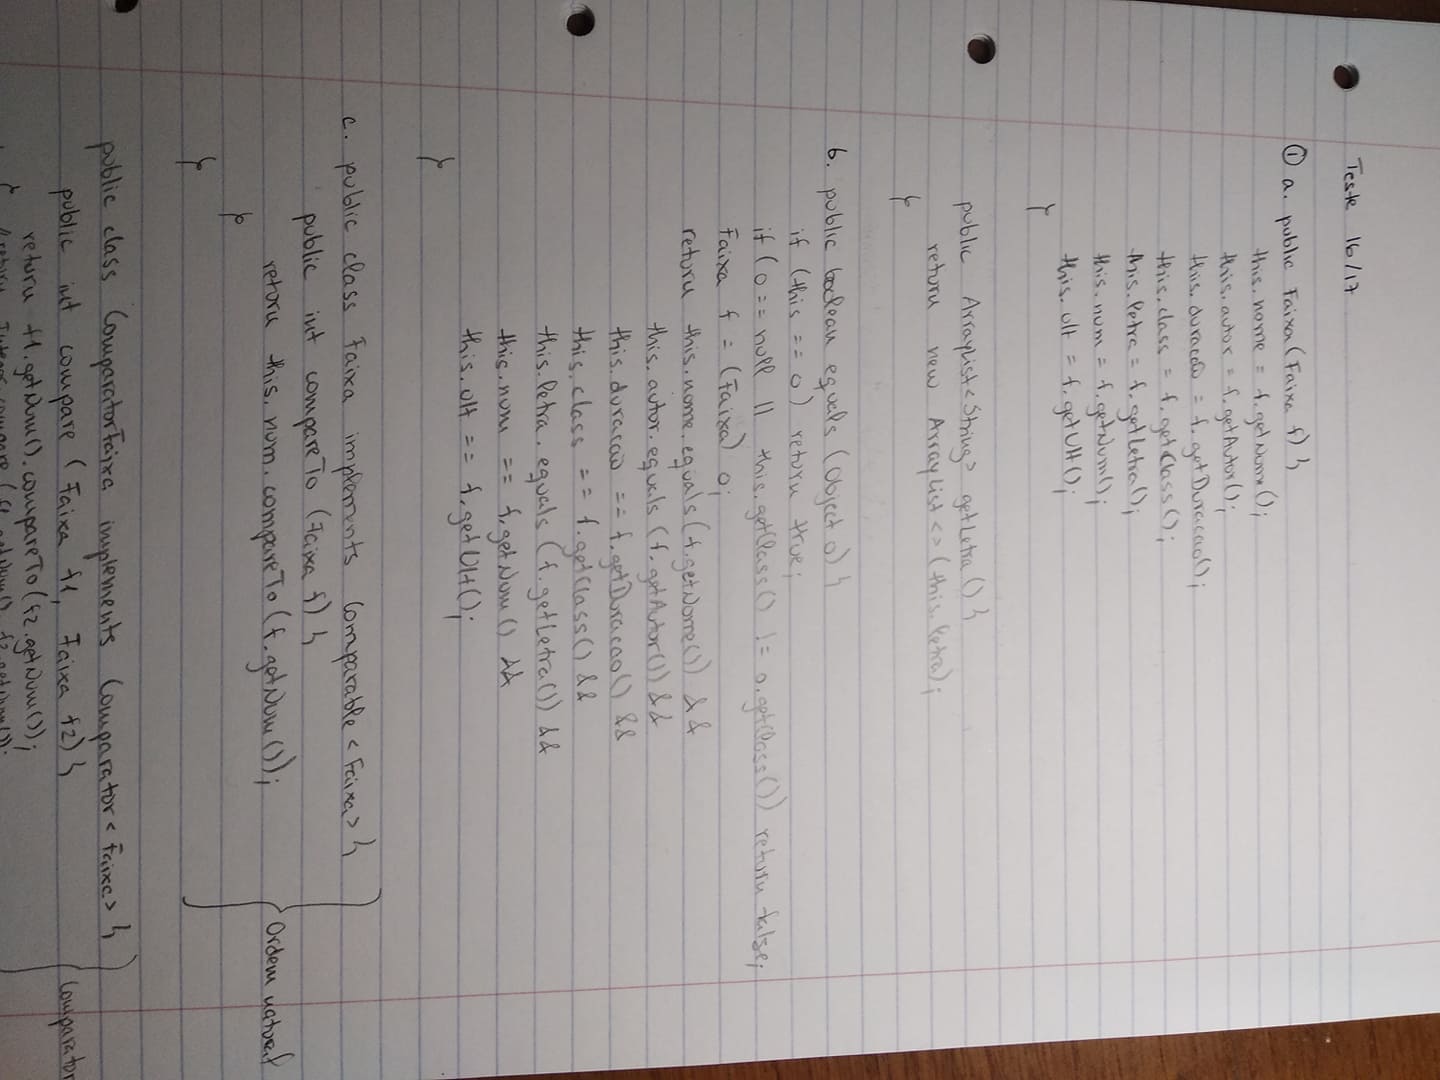 Teste 16/17
① a. public Faixa (Faixa f) {
this.nome = f.getNome();
this.autor = f.getAutor();
this.duracao = f.getDuracao();
this.class = f.getClass();
this.letra = f.getLetra();
this.num = f.getNum();
this.ult = f.getUlt();
}
public ArrayList<String> getLetra () {
return new ArrayList<>(this.letra);
}
b. public boolean equals (Object o) {
if (this == o) return true;
if (o == null || this.getClass() != o.getClass()) return false;
Faixa f = (Faixa) o;
return this.nome.equals(f.getNome()) &&
this.autor.equals (f.getAutor()) &&
this.duracao == f.getDuracao() &&
this.class == f.getClass() &&
this.letra.equals (f.getLetra()) &&
this.num == f.getNum() &&
this.ult == f.getUlt();
}
c. public class Faixa implements Comparable<Faixa> {
public int compareTo (Faixa f) {
return this.num.compareTo(f.getNum());
}
}
Ordem natural
public class ComparatorFaixa implements Comparator<Faixa> {
public int compare (Faixa f1, Faixa f2) {
return f1.getNum().compareTo(f2.getNum());
Comparator
} //return Integer.compare (f1.getNum(), f2.getNum());